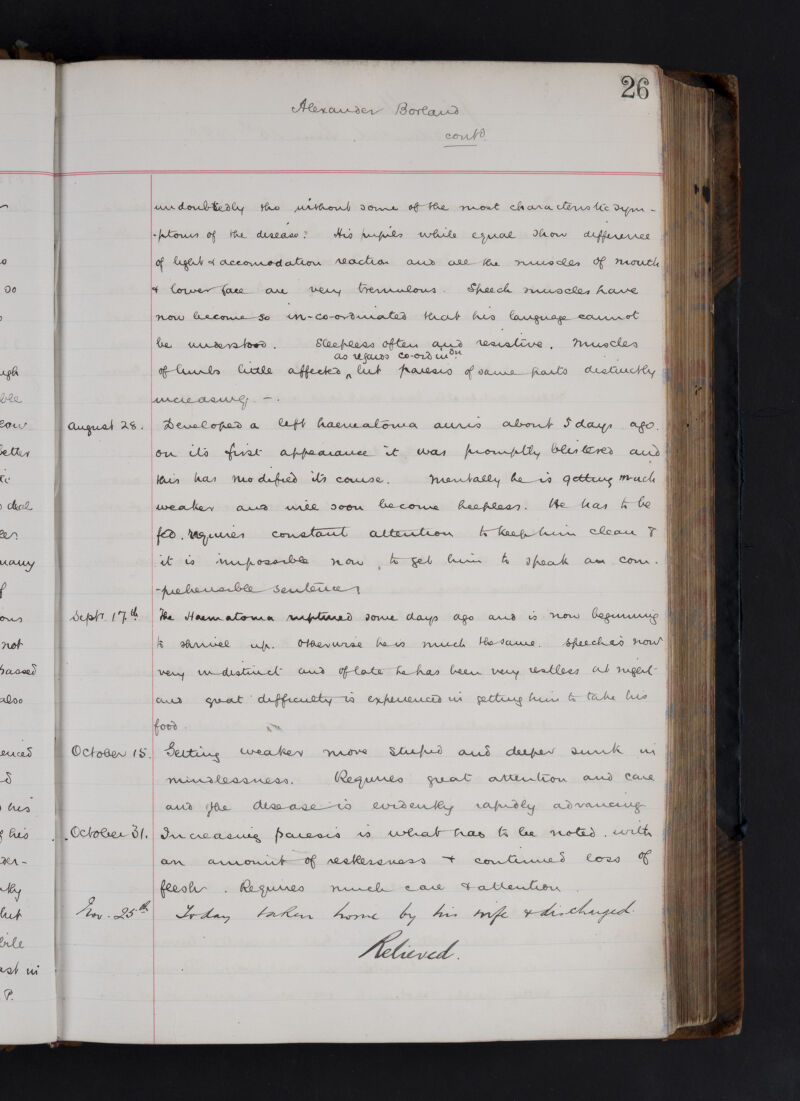 26
Alexander Borland
contd
undoubtedly tho without some of the most characteristic sym-
-ptoms of the disease: His pupils while equal show difference
of light & accomodation reaction and all the muscles of mouth
& lower face are very tremulous. Speech muscles have
now become so in-co-ordinated that his language cannot
be understood. Sleepless often and resistive. Muscles
as regards co-ordindn
of limbs little affected, but paresis of same parts distinctly
increasing -.
August 28. Developed a left haematoma auris about 5 days ago.
on its first appearance it was promptly blistered and
this has modified its course. Mentally he is getting much
weaker and will soon become helpless. He has to be
fed. requires constant attention to keep him clean &
it is impossible now, to get him to speak an com-
-prehensible sentence,
Septr 17th The Haematoma ruptured some days ago and is now beginning
to shrivel up. Otherwise he is much the same. Speech is now
very indistinct and of late he has been very restless at night
and great difficulty is experienced in getting him to take his
food.
October 15. Getting weaker more stupid and deeper sunk in
mindlessness. Requires great attention and care
and the disease is evidently rapidly advancing
October 31. Increasing paresis is what has to be noted. with
an amount of restlessness & continued loss of
flesh. Requires much care & attention.
Nov. 25th Today taken home by his wife & discharged.
Relieved.